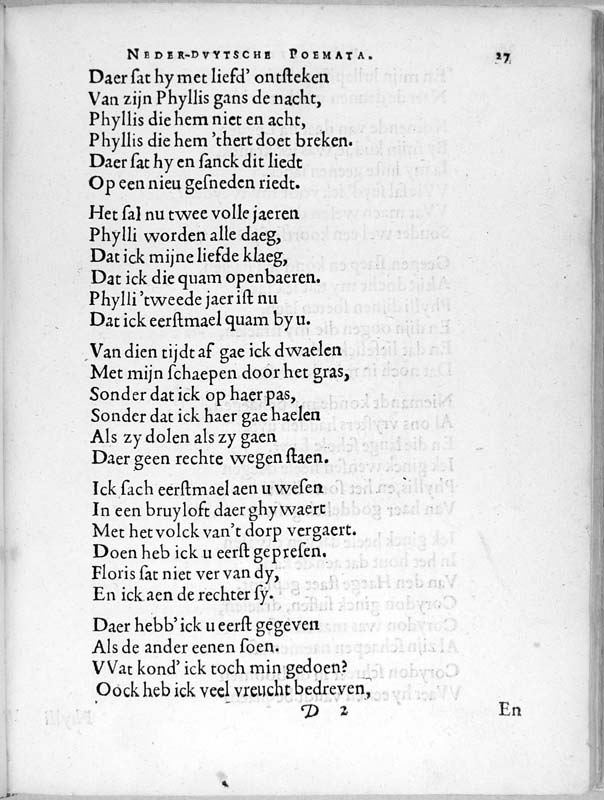 NEDER-DVYTSCHE POEMATA. 27
Daer sat hy met liefd' ontsteken
Van zijn Phyllis gans de nacht,
Phyllis die hem niet en acht,
Phyllis die hem 'thert doet breken.
Daer sat hy en sanck dit liedt
Op een nieu gesneden riedt.
Het sal nu twee volle jaeren
Phylli worden alle daeg,
Dat ick mijne liefde klaeg,
Dat ick die quam openbaeren.
Phylli 'tweede jaer ist nu
Dat ick eerstmael quam by u.
Van dien tijdt af gae ick dwaelen
Met mijn schaepen door het gras,
Sonder dat ick op haer pas,
Sonder dat ick haer gae haelen
Als zy dolen als zy gaen
Daer geen rechte wegen staen.
Ick sach eerstmael aen u wesen
In een bruyloft daer ghy waert
Met het volck van't dorp vergaert.
Doen heb ick u eerst gepresen.
Floris sat niet ver van dy,
En ick aen de rechter sy.
Daer hebb' ick u eerst gegeven
Als de ander eenen soen.
VVat kond' ick toch min gedoen?
Oock heb ick veel vreucht bedreven,
D 2 En